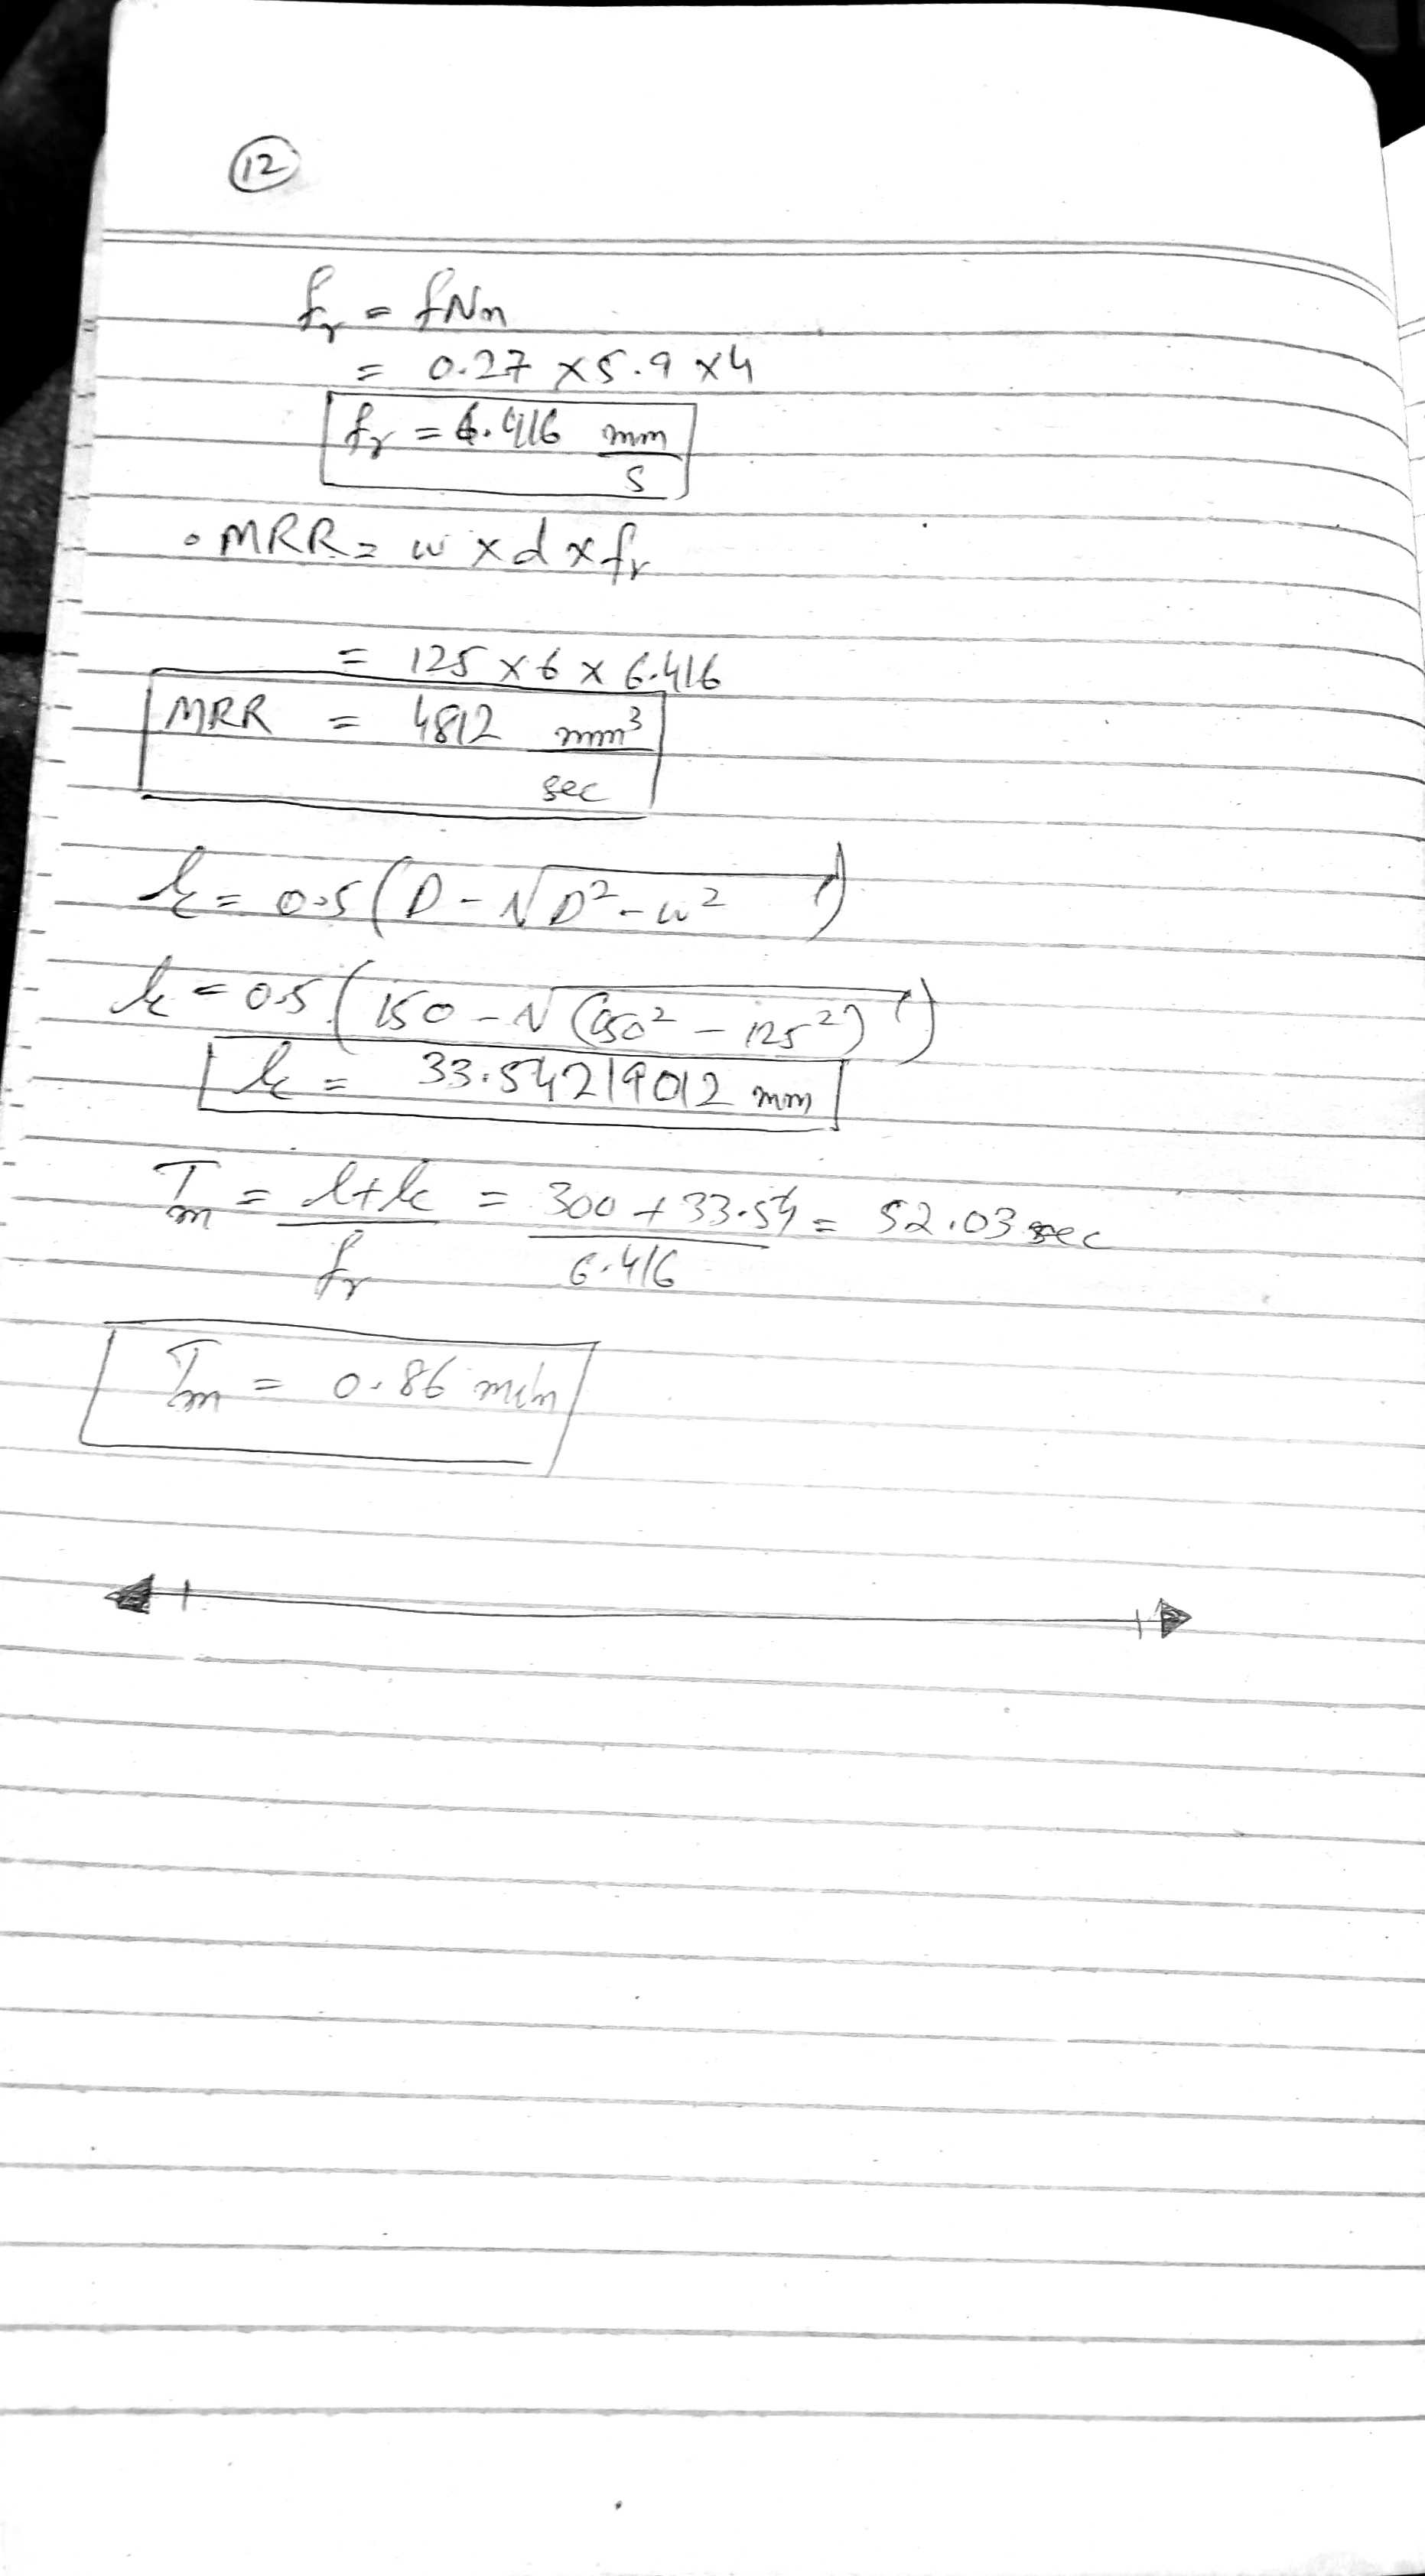 12
fr = fNn
= 0.27 x 5.9 x 4
fr = 6.416 mm/s
• MRR = w x d x fr
= 125 x 6 x 6.416
MRR = 4812 mm³/sec
lc = 0.5 (D - √D² - w²)
lc = 0.5 (150 - √(150² - 125²))
lc = 33.54219012 mm
Tm = l+lc/fr = 300 + 33.54/6.416 = 52.03 sec
Tm = 0.86 min